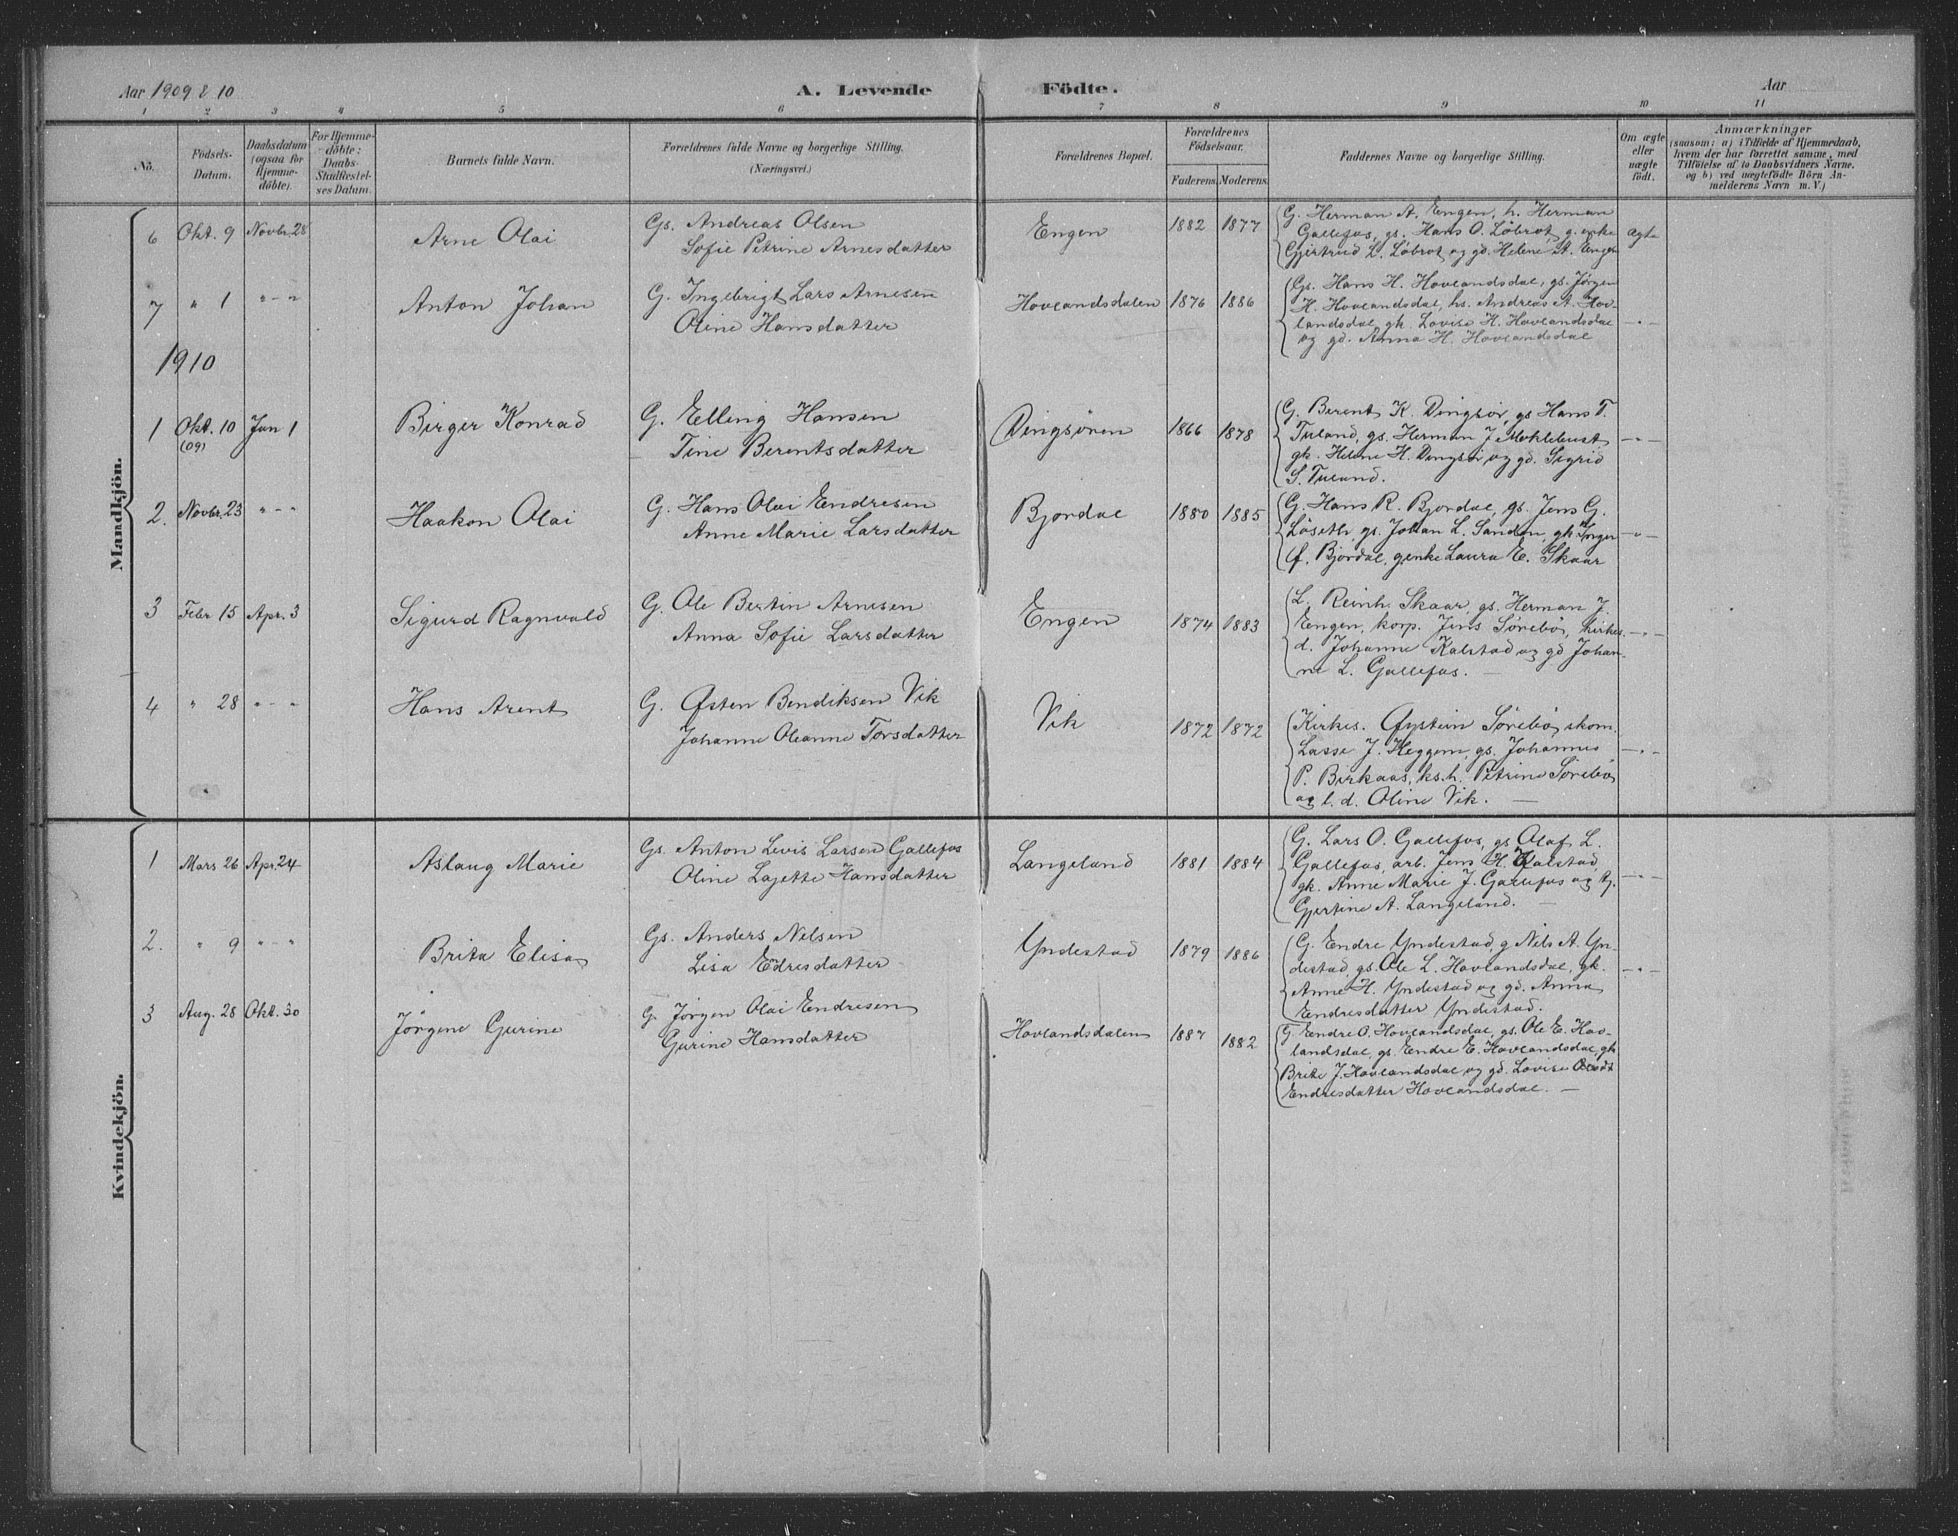 Aar 1909 & 10 A. Levende Födte. Aar
1 2 3 4 5 6 7 8 9 10 11
No. Födsels-Datum. Daabsdatum (ogsaa for Hjemme-döbte). For Hjemme-döbte: Daabs-Stadfæstel-ses Datum. Barnets fulde Navn. Forældrenes fulde Navne og borgerlige Stilling. (Næringsvei.) Forældrenes Bopæl. Forældrenes Födselsaar. Faderens. Moderens. Faddernes Navne og borgerlige Stilling. Om ægte eller uægte födt. Anmærkninger
(saasom: a) i Tilfælde af Hjemmedaab,
hvem der har forrettet samme, med
Tilföielse af to Daabsvidners Navne.
og b) ved uægtefödte Börn An-
melderens Navn m. V.)
Mandkjön.
6 Okt. 9 Novbr. 28 Arne Olai Gs. Andreas Olsen
Sofie Petrine Arnesdatter
Engen 1882 1877 G. Herman A. Engen, h. Herman
Gallefos, gs. Hans O. Löbrot, g. enke
Gjertrud L. Löbrot og gd. Helene A. Engen
ægte
7 " 1 " - " Anton Johan G. Ingebrigt Lars Arnesen
Oline Hansdatter
Hovlandsdalen 1876 1886 Gs. Hans H. Hovlandsdal, gs. Jørgen
H. Hovlandsdal, hs. Andreas A. Hov-
landsdal, gk. Lovise H. Hovlandsdal
og gd. Anna H. Hovlandsdal
- " -
1910
1 Okt. 10 (09) Jan 1 Birger Konrad G. Elling Hansen
Tine Berentsdatter
Dingsøren 1866 1878 G. Berent K. Dingsør, gs Hans T.
Tuland, gs. Herman J Moklebust
gk. Helene H. Dingsør og gd. Sigrid
S. Tuland.
- " -
2. Novbr. 23 " - " Haakon Olai G. Hans Olai Endresen
Anne Marie Larsdatter
Bjordal 1880 1885 G. Hans R. Bjordal, gs. Jens G.
Löseth, gs. Johan L. Sanden, gk. Inger
Bjordal, g.enke Laura E. Skaar
- " -
3 Febr 15 Apr. 3 Sigurd Ragnvald G. Ole Bertin Arnesen
Anna Sofie Larsdatter
Engen 1874 1883 L. Reinh. Skaar, gs. Herman J.
Engen, korp. Jens Sørebö, kirkes.
d. Johanne Kalstad og gd Johan-
ne L. Gallefos. -
- " -
4 " 28 " - " Hans Arent G. Østen Bendiksen Vik
Johanne Oleanne Torsdatter
Vik 1872 1872 Kirkes. Øystein Sørebö, skom.
Lasse J. Heggem, gs. Johannes
P. Birkaas, ks.h. Petrine Sørebö
og l. d. Oline Vik. -
- " -
Kvindekjön.
1 Mars 26 Apr. 24 Aslaug Marie Gs. Anton Levis Larsen Gallefos
Oline Lagette Hansdatter
Langeland 1881 1884 G. Lars O. Gallefos, gs Olaf L.
Gallefos, arb. Jens H. Kalstad,
gk. Anne Marie J. Gallefos og G.
Gjertine A. Langeland. -
- " -
2. " 9 " - " Brita Elisa Gs. Anders Nilsen
Lisa Edresdatter
Yndestad 1879 1886 G. Endre Yndestad, g Nils A. Yn-
destad, gs. Ole L. Hovlandsdal, gk.
Anne H. Yndestad og gd. Anna
Endresdatter Yndestad.
- " -
3 Aug. 28 Okt. 30 Jörgine Gurine G. Jørgen Olai Endresen
Gurine Hansdatter
Hovlandsdalen 1887 1882 G Endre O. Hovlandsdal, gs. Ole E. Hov-
landsdal, gs. Endre E. Hovlandsdal, gk
Brite J. Hovlandsdal og gd. Lovise
Endresdatter Hovlandsdal. -